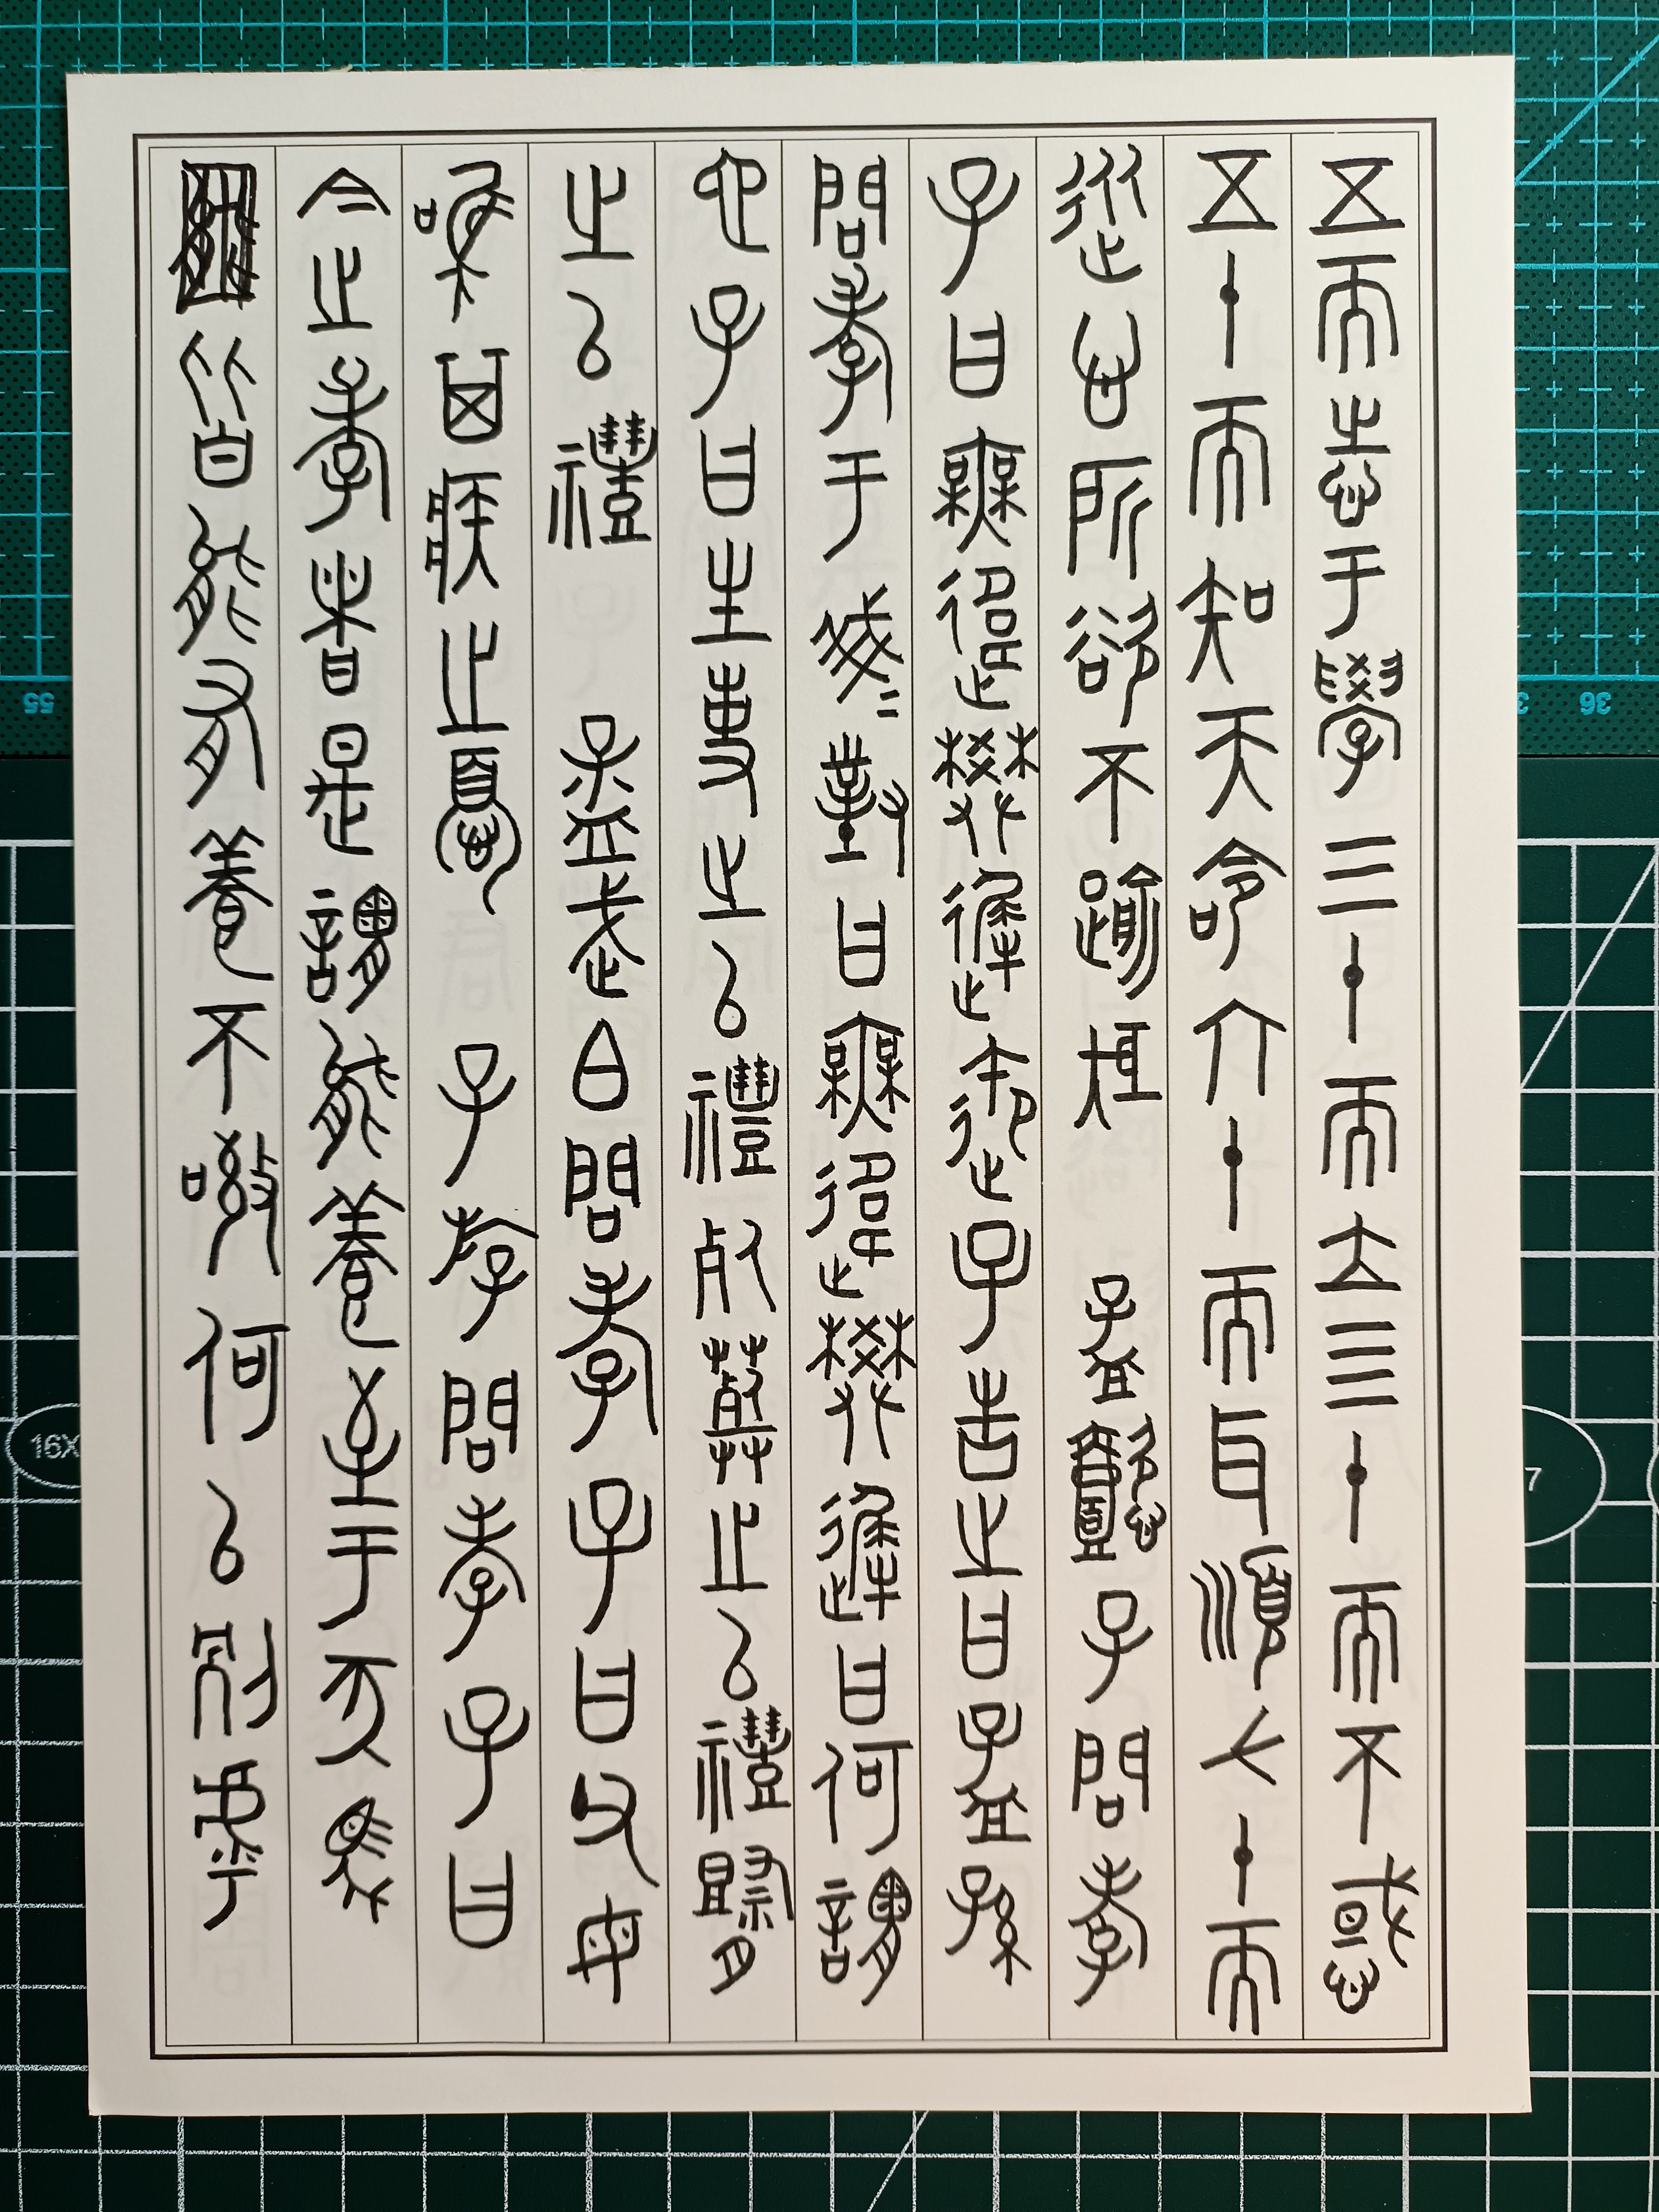 五而志于學三十而立四十而不惑
五十而知天命六十而耳順七十而
從心所欲不踰矩 孟懿子問孝
子曰無違樊遲御子告之曰孟孫
問孝于我=對曰無違樊遲曰何謂
也子曰生事之以禮死葬之以禮祭
之以禮 孟武伯問孝子曰父母
唯其疾之憂 子游問孝子曰
今之孝者是謂能養至于犬馬
皆能有養不敬何以別乎